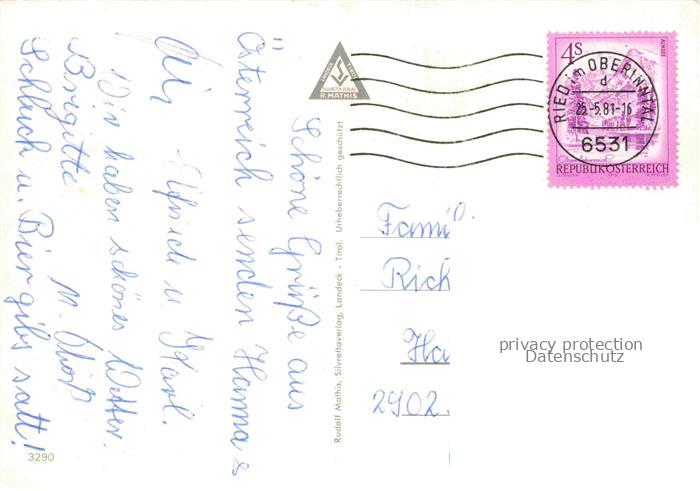 Schöne Grüße aus
Österreich senden Hanna &
Uli, Elfriede u. Karl.
Wir haben schönes Wetter.
Brigitte u.
Schlauch u. Bier gibs satt!
3290
SILVRETTA VERLAG
R. MATHIS
Rudolf Mathis, Silvrettaverlag, Landeck - Tirol. Urheberrechtlich geschützt!
4S
ALMSEE
RIED im OBERINNTAL
d
25.-5.81-16
6531
REPUBLIK ÖSTERREICH
Famil
Rich
Ha
2902
privacy protection
Datenschutz